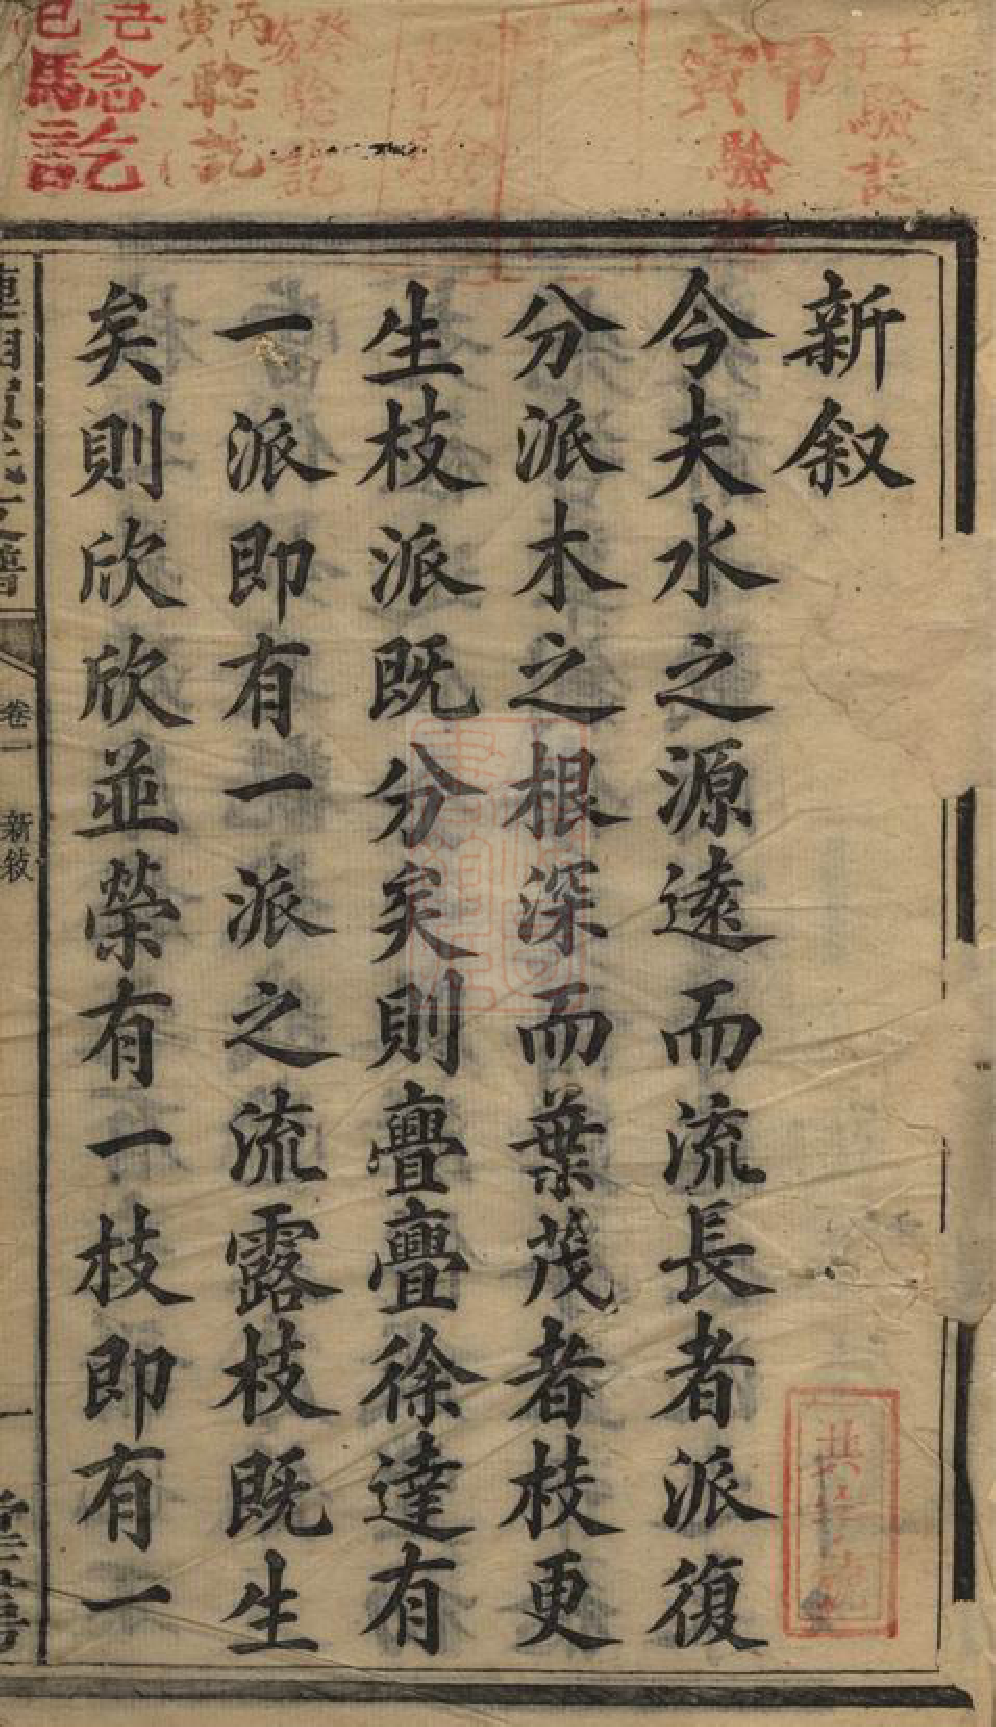 新叙
今夫水之源遠而流長者派復
分派木之根深而葉茂者枝更
生枝派既分矣則亹亹徐達有
一派即有一派之流露枝既生
矣則欣欣並榮有一枝即有一
卷一
新敍
一
壬
驗訖
甲寅
驗
癸
驗訖
丙寅
驗訖
己巳
驗訖